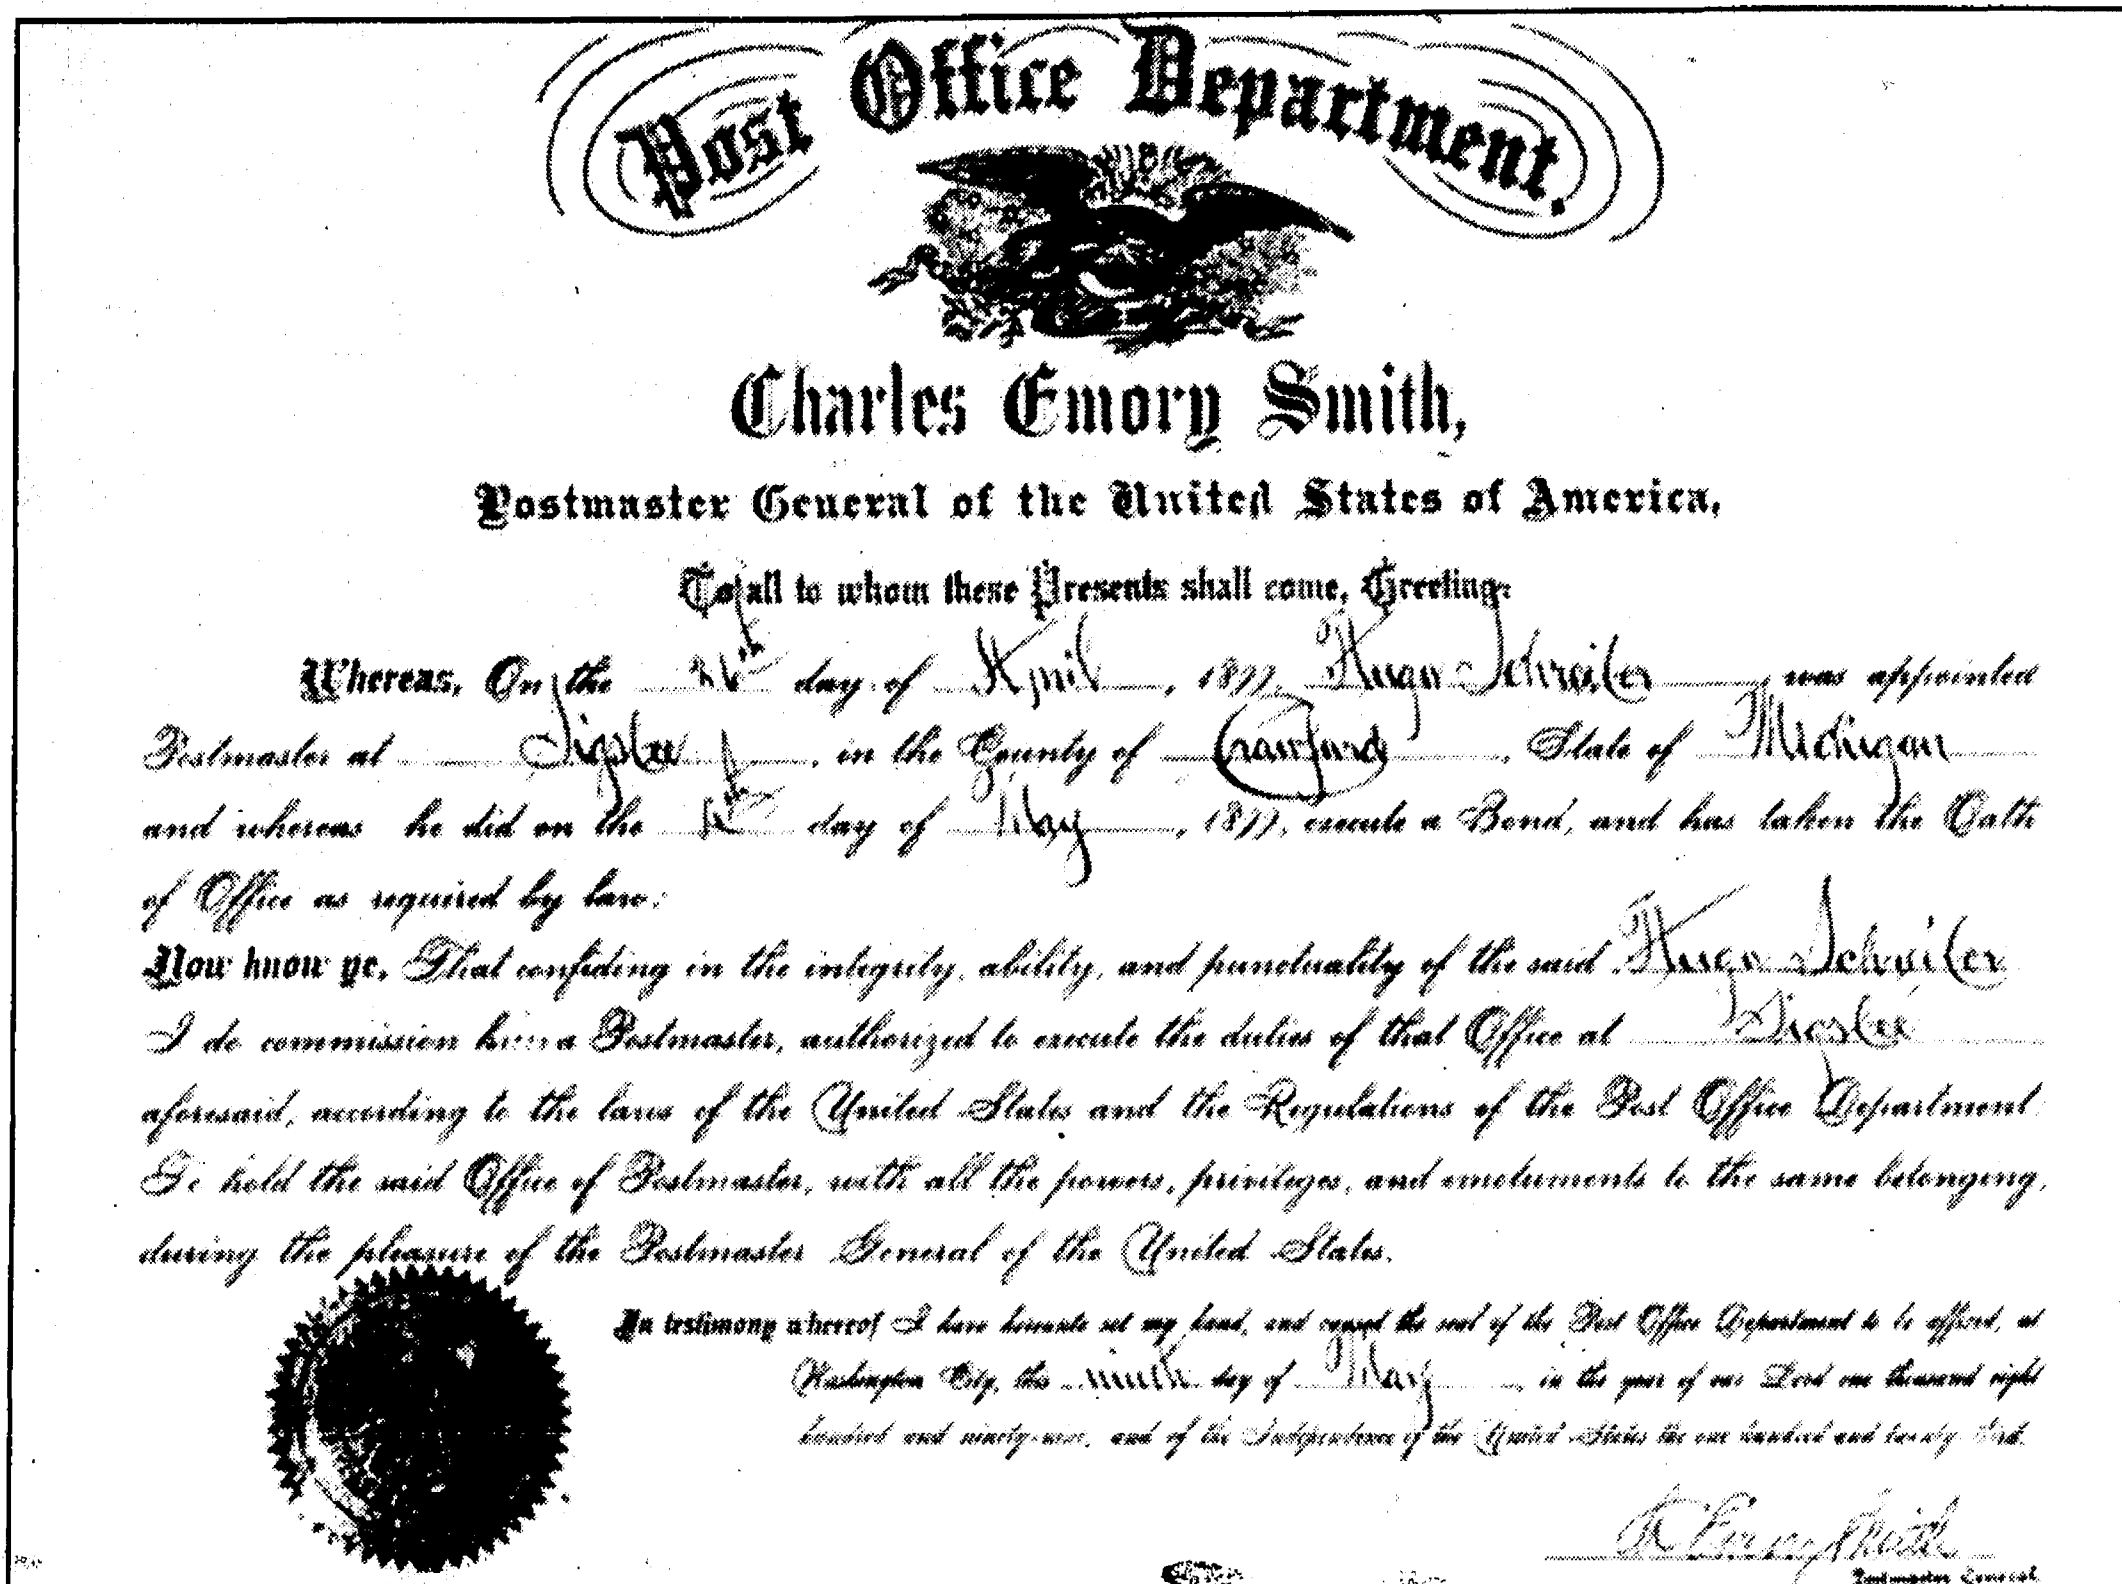 Post Office Department.
Charles Emory Smith,
Postmaster General of the United States of America,
To all to whom these Presents shall come, Greeting:
Whereas, On the day of April, 1899, Hugo Schreiber, was appointed
Postmaster at Sigsbee, in the County of Crawford, State of Michigan
and whereas he did on the day of May, 1899, execute a Bond, and has taken the Oath
of Office as required by law:
Now know ye, That confiding in the integrity, ability, and punctuality of the said Hugo Schreiber
I do commission him a Postmaster, authorized to execute the duties of that Office at Sigsbee
aforesaid, according to the laws of the United States and the Regulations of the Post Office Department
To hold the said Office of Postmaster, with all the powers, privileges, and emoluments to the same belonging,
during the pleasure of the Postmaster General of the United States.
In testimony whereof I have hereunto set my hand, and caused the seal of the Post Office Department to be affixed, at
Washington City, this ninth day of May, in the year of our Lord one thousand eight
hundred and ninety-nine, and of the Independence of the United States the one hundred and twenty third.
Ch Emory Smith
Postmaster General.